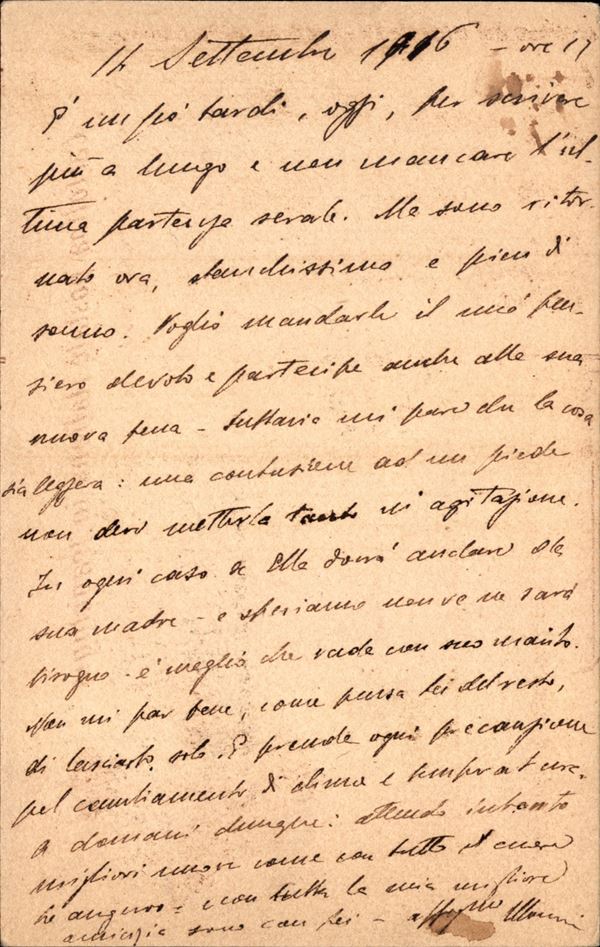 14 Settembre 1916 – ore 17
È un pò tardi, oggi, per scrivere
più a lungo e non mancare l'ul-
tima partenza serale. Ma sono ritor-
nato ora, stanchissimo e pien di
sonno. Voglio mandarle il mio pen-
siero devoto e partecipe anche alla sua
nuova pena – tuttavia mi pare che la cosa
sia leggera: una contusione ad un piede
non deve metterla tanto in agitazione.
In ogni caso se Ella dovrà andare da
sua madre – e speriamo non ve ne sarà
bisogno – è meglio che vada con suo marito.
Non mi par bene, come pensa lei del resto,
di lasciarlo solo. E prenda ogni precauzione
pel cambiamento di clima e temperature.
A domani dunque: attendo intanto
migliori nuove come con tutto il cuore
le auguro – e con tutta la mia migliore
amicizia sono con lei –